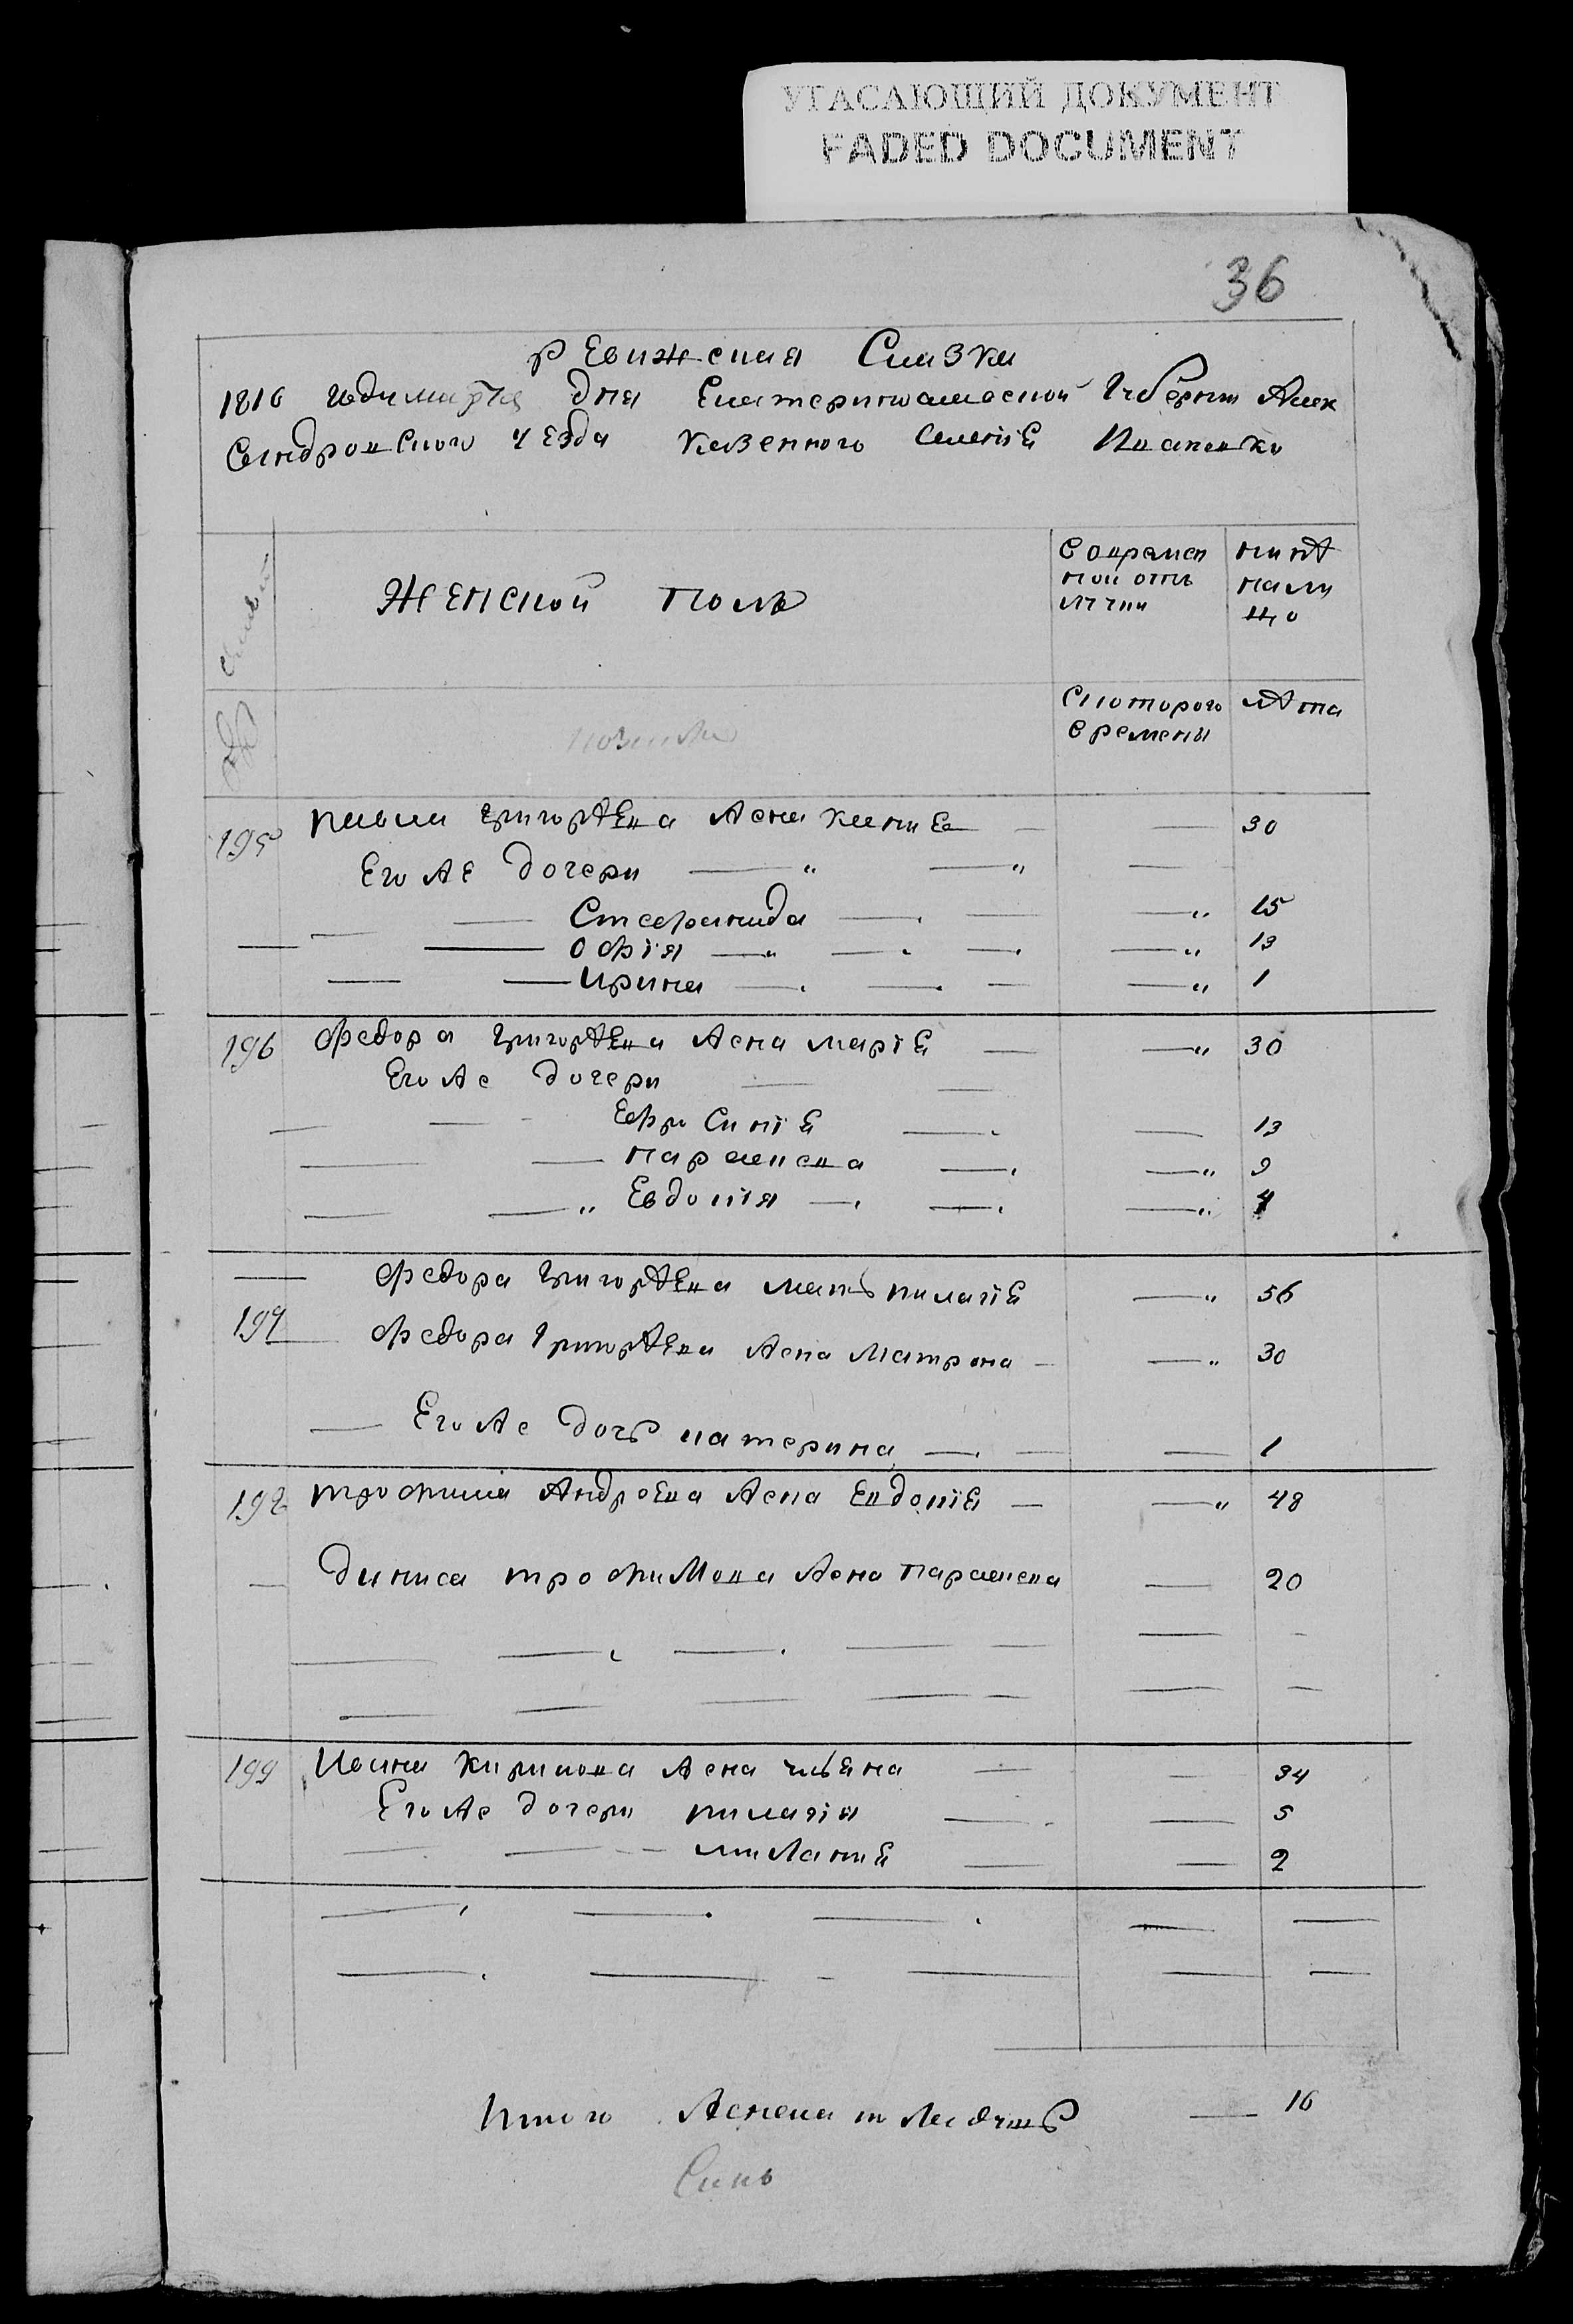 УГАСАЮЩИЙ ДОКУМЕНТ
FADED DOCUMENT
36
ревижская Сказка
1816 года марта дня Екатеринославской Губернии Алек
сандровского уезда казенного селения
Женской пол
во времен
ной отъ
лучки
нинѣ
нали
що
Скоторого
времены
лѣта
195 григорѣева жена 30
Его же дочери
Стефанида 15
офія 13
Ирина 1
196 Федора григорѣева жена маріа 30
Его же дочери
Ефросиніа 13
параскева 9
Евдокія 4
Федора григорѣева мать пилагіа 56
197 Федора григорѣева жена матрона 30
Его же дочь катерина 1
198 трофима Андреева жена Евдокіа 48
диниса трофимова жена параскева 20
199 Ивана кирилова жена улѣяна 34
Его же дочери пилагія 5
миланиа 2
Итого женска 16